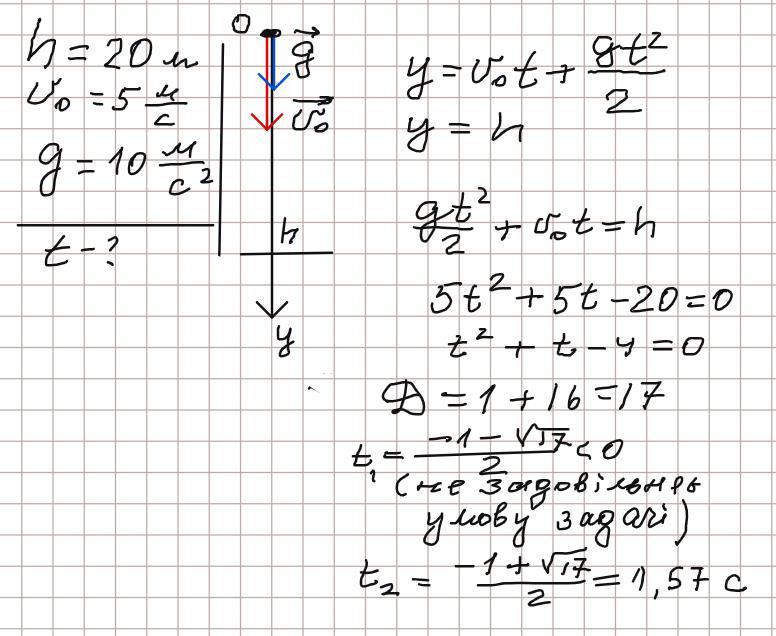 h = 20 м
v₀ = 5 м/с
g = 10 м/с²
t - ?
0
g
v₀
h
y
y = v₀t + gt²/2
y = h
gt²/2 + v₀t = h
5t² + 5t - 20 = 0
t² + t - 4 = 0
D = 1 + 16 = 17
t₁ = (-1 - √17)/2 < 0
(не задовільняє
умову задачі)
t₂ = (-1 + √17)/2 = 1,57 с